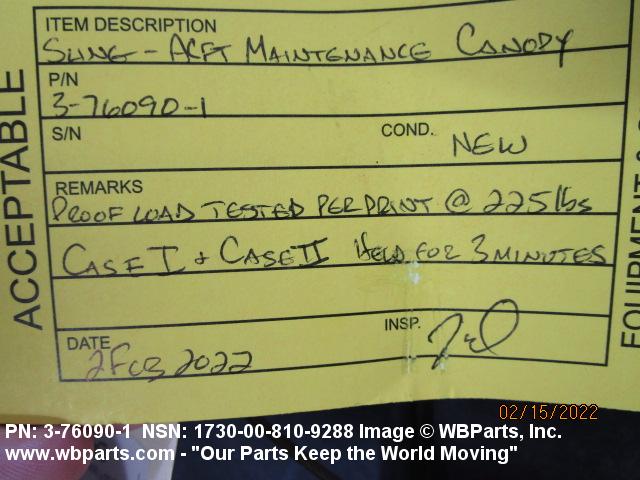 ITEM DESCRIPTION
SLING - ACFT MAINTENANCE CANOPY
P/N
3-76090-1
S/N
COND. NEW
REMARKS
PROOF LOAD TESTED PER PRINT @ 225 lbs
CASE I + CASE II HELD FOR 3 MINUTES
DATE 2 FEB 2022
INSP.
ACCEPTABLE
02/15/2022
PN: 3-76090-1 NSN: 1730-00-810-9288 Image © WBParts, Inc.
www.wbparts.com - "Our Parts Keep the World Moving"